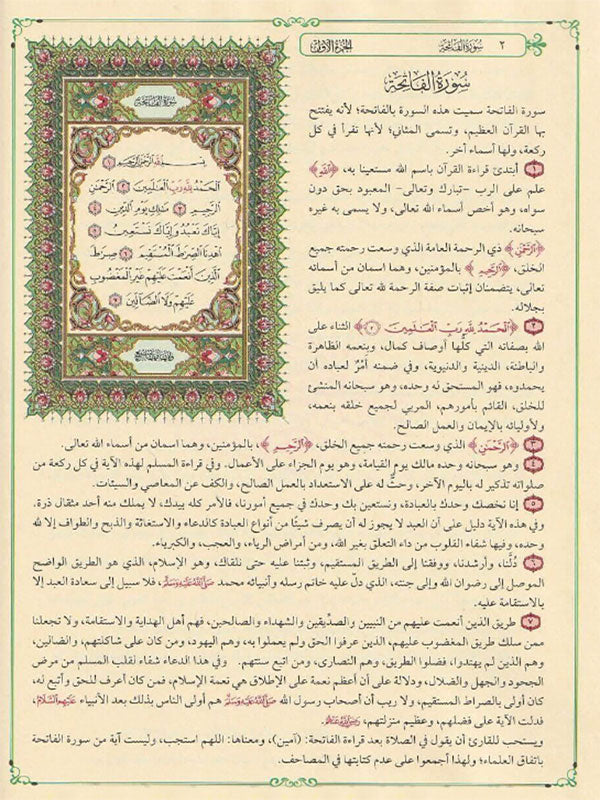 ٢ سُورَةُ الفَاتِحَةِ الجُزءُ الأوّلُ
سُورَةُ الفَاتِحَة
سُورَةُ الفَاتِحَةِ
بِسْمِ اللَّهِ الرَّحْمَٰنِ الرَّحِيمِ ١
الْحَمْدُ لِلَّهِ رَبِّ الْعَالَمِينَ ٢ الرَّحْمَٰنِ
الرَّحِيمِ ٣ مَالِكِ يَوْمِ الدِّينِ ٤
إِيَّاكَ نَعْبُدُ وَإِيَّاكَ نَسْتَعِينُ ٥
اهْدِنَا الصِّرَاطَ الْمُسْتَقِيمَ ٦ صِرَاطَ
الَّذِينَ أَنْعَمْتَ عَلَيْهِمْ غَيْرِ الْمَغْضُوبِ
عَلَيْهِمْ وَلَا الضَّالِّينَ ٧
سورة الفاتحة سميت هذه السورة بالفاتحة؛ لأنه يفتتح
بها القرآن العظيم، وتسمى المثاني؛ لأنها تقرأ في كل
ركعة، ولها أسماء أخر.
١ أبتدئ قراءة القرآن باسم الله مستعينا به، ﴿اللَّهِ﴾
علم على الرب -تبارك وتعالى- المعبود بحق دون
سواه، وهو أخص أسماء الله تعالى، ولا يسمى به غيره
سبحانه.
﴿الرَّحْمَٰنِ﴾ ذي الرحمة العامة الذي وسعت رحمته جميع
الخلق، ﴿الرَّحِيمِ﴾ بالمؤمنين، وهما اسمان من أسمائه
تعالى، يتضمنان إثبات صفة الرحمة لله تعالى كما يليق
بجلاله.
٢ ﴿الْحَمْدُ لِلَّهِ رَبِّ الْعَالَمِينَ ٢﴾ الثناء على
الله بصفاته التي كلُّها أوصاف كمال، وبنعمه الظاهرة
والباطنة، الدينية والدنيوية، وفي ضمنه أَمْرٌ لعباده أن
يحمدوه، فهو المستحق له وحده، وهو سبحانه المنشئ
للخلق، القائم بأمورهم، المربي لجميع خلقه بنعمه،
ولأوليائه بالإيمان والعمل الصالح.
٣ ﴿الرَّحْمَٰنِ﴾ الذي وسعت رحمته جميع الخلق، ﴿الرَّحِيمِ﴾، بالمؤمنين، وهما اسمان من أسماء الله تعالى.
٤ وهو سبحانه وحده مالك يوم القيامة، وهو يوم الجزاء على الأعمال. وفي قراءة المسلم لهذه الآية في كل ركعة من
صلواته تذكير له باليوم الآخر، وحثٌّ له على الاستعداد بالعمل الصالح، والكف عن المعاصي والسيئات.
٥ إنا نخصك وحدك بالعبادة، ونستعين بك وحدك في جميع أمورنا، فالأمر كله بيدك، لا يملك منه أحد مثقال ذرة.
وفي هذه الآية دليل على أن العبد لا يجوز له أن يصرف شيئًا من أنواع العبادة كالدعاء والاستغاثة والذبح والطواف إلا لله
وحده، وفيها شفاء القلوب من داء التعلق بغير الله، ومن أمراض الرياء، والعجب، والكبرياء.
٦ دُلَّنا، وأرشدنا، ووفقنا إلى الطريق المستقيم، وثبتنا عليه حتى نلقاك، وهو الإسلام، الذي هو الطريق الواضح
الموصل إلى رضوان الله وإلى جنته، الذي دلّ عليه خاتم رسله وأنبيائه محمد صَلَّى اللَّهُ عَلَيْهِ وَسَلَّمَ، فلا سبيل إلى سعادة العبد إلا
بالاستقامة عليه.
٧ طريق الذين أنعمت عليهم من النبيين والصدِّيقين والشهداء والصالحين، فهم أهل الهداية والاستقامة، ولا تجعلنا
ممن سلك طريق المغضوب عليهم، الذين عرفوا الحق ولم يعملوا به، وهم اليهود، ومن كان على شاكلتهم، والضالين،
وهم الذين لم يهتدوا، فضلوا الطريق، وهم النصارى، ومن اتبع سنتهم. وفي هذا الدعاء شفاء لقلب المسلم من مرض
الجحود والجهل والضلال، ودلالة على أن أعظم نعمة على الإطلاق هي نعمة الإسلام، فمن كان أعرف للحق وأتبع له،
كان أولى بالصراط المستقيم، ولا ريب أن أصحاب رسول الله صَلَّى اللَّهُ عَلَيْهِ وَسَلَّمَ هم أولى الناس بذلك بعد الأنبياء عَلَيْهِمُ السَّلَامُ،
فدلت الآية على فضلهم، وعظيم منزلتهم، رَضِيَ اللَّهُ عَنْهُمْ.
ويستحب للقارئ أن يقول في الصلاة بعد قراءة الفاتحة: (آمين)، ومعناها: اللهم استجب، وليست آية من سورة الفاتحة
باتفاق العلماء؛ ولهذا أجمعوا على عدم كتابتها في المصاحف.